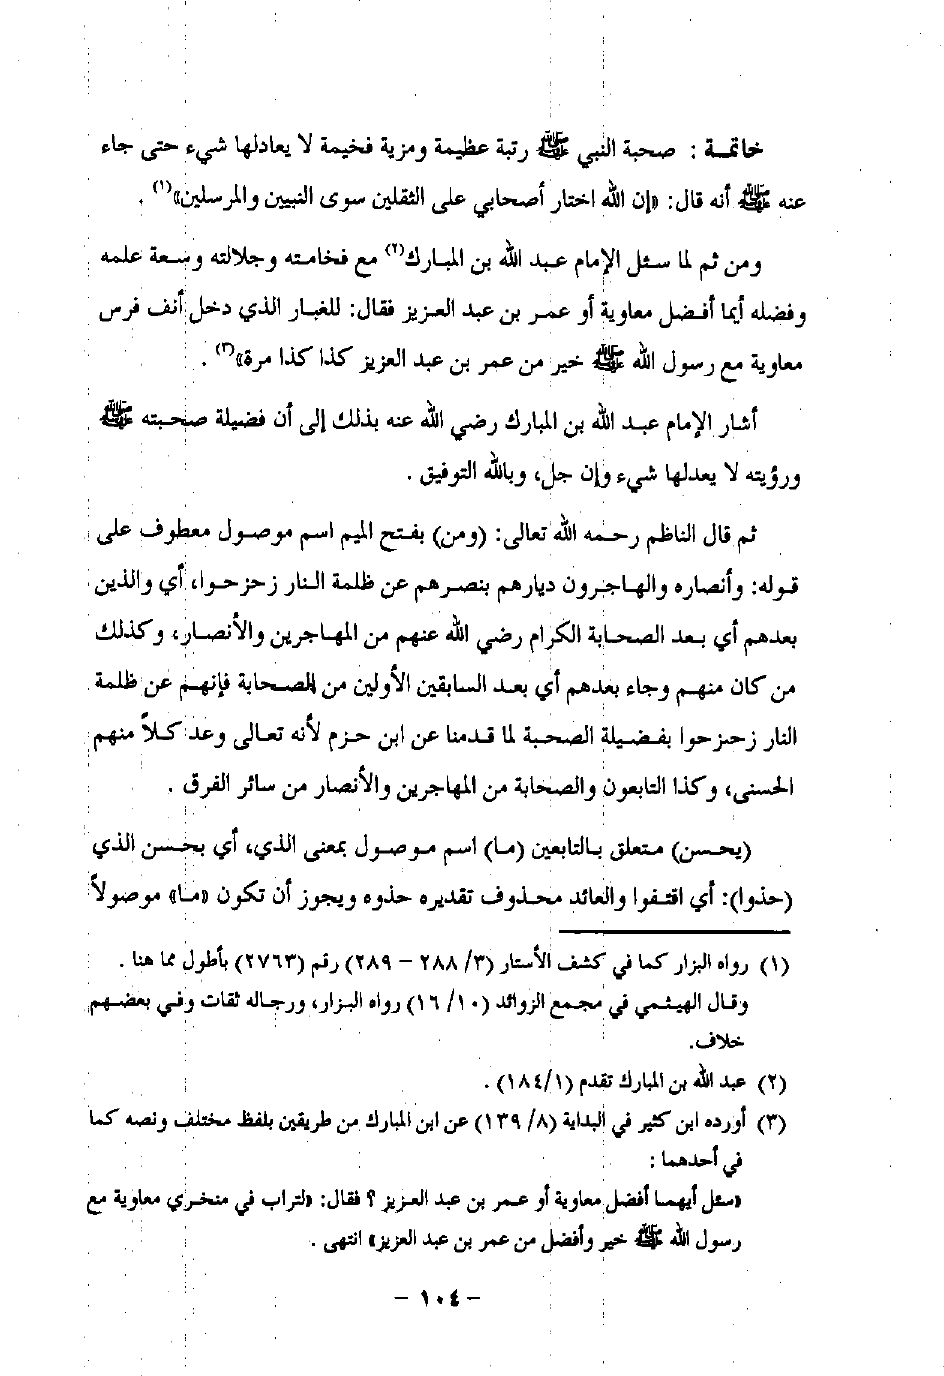 خاتمة : صحبة النبي ﷺ رتبة عظيمة ومزية فخيمة لا يعادلها شيء حتى جاء
عنه ﷺ أنه قال: «إن الله اختار أصحابي على الثقلين سوى النبيين والمرسلين»(١) .
ومن ثم لما سئل الإمام عبد الله بن المبارك(٢) مع فخامته وجلالته وسعة علمه
وفضله أيما أفضل معاوية أو عمر بن عبد العزيز فقال: للغبار الذي دخل أنف فرس
معاوية مع رسول الله ﷺ خير من عمر بن عبد العزيز كذا كذا مرة»(٣) .
أشار الإمام عبد الله بن المبارك رضي الله عنه بذلك إلى أن فضيلة صحبته ﷺ
ورؤيته لا يعدلها شيء وإن جل، وبالله التوفيق .
ثم قال الناظم رحمه الله تعالى: (ومن) بفتح الميم اسم موصول معطوف على
قوله: وأنصاره والهاجرون ديارهم بنصرهم عن ظلمة النار زحزحوا، أي والذين
بعدهم أي بعد الصحابة الكرام رضي الله عنهم من المهاجرين والأنصار، وكذلك
من كان منهم وجاء بعدهم أي بعد السابقين الأولين من الصحابة فإنهم عن ظلمة
النار زحزحوا بفضيلة الصحبة لما قدمنا عن ابن حزم لأنه تعالى وعد كلاً منهم
الحسنى، وكذا التابعون والصحابة من المهاجرين والأنصار من سائر الفرق .
(بحسن) متعلق بالتابعين (ما) اسم موصول بمعنى الذي، أي بحسن الذي
(حذوا): أي اقتفوا والعائد محذوف تقديره حذوه ويجوز أن تكون «ما» موصولاً
(١) رواه البزار كما في كشف الأستار (٣/ ٢٨٨ – ٢٨٩) رقم (٢٧٦٣) بأطول مما هنا .
وقال الهيثمي في مجمع الزوائد (١٠/ ١٦) رواه البزار، ورجاله ثقات وفي بعضهم
خلاف.
(٢) عبد الله بن المبارك تقدم (١/ ١٨٤) .
(٣) أورده ابن كثير في البداية (٨/ ١٣٩) عن ابن المبارك من طريقين بلفظ مختلف ونصه كما
في أحدهما :
«سئل أيهما أفضل معاوية أو عمر بن عبد العزيز ؟ فقال: «لتراب في منخري معاوية مع
رسول الله ﷺ خير وأفضل من عمر بن عبد العزيز» انتهى .
– ١٠٤ –